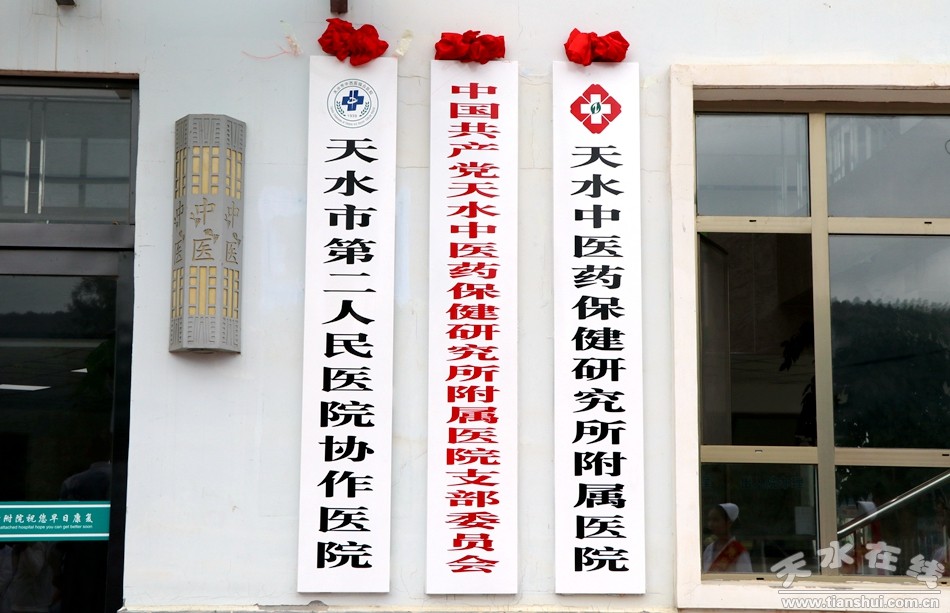 天水市第二人民医院协作医院
中国共产党天水中医药保健研究所附属医院支部委员会
天水中医药保健研究所附属医院
中医
中医
中医
附院祝您早日康复
attached hospital hope you can get better soon
天水在线
www.tianshui.com.cn